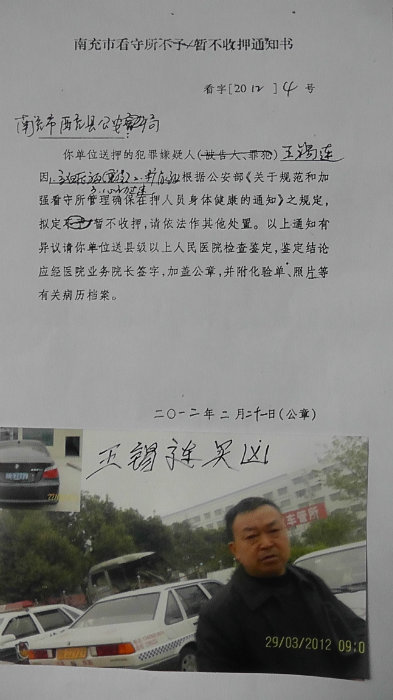 南充市看守所不予/暂不收押通知书
看字[2012]4号
南充市西充县公安局
你单位送押的犯罪嫌疑人(被告人、罪犯)王锡连
因,根据公安部《关于规范和加
强看守所管理确保在押人员身体健康的通知》之规定,
拟定不予/暂不收押,请依法作其他处置。以上通知有
异议请你单位送县级以上人民医院检查鉴定,鉴定结论
应经医院业务院长签字,加盖公章,并附化验单、照片等
有关病历档案。
二〇一二年二月二十一日(公章)
王锡连买凶
车管所
29/03/2012 09:0